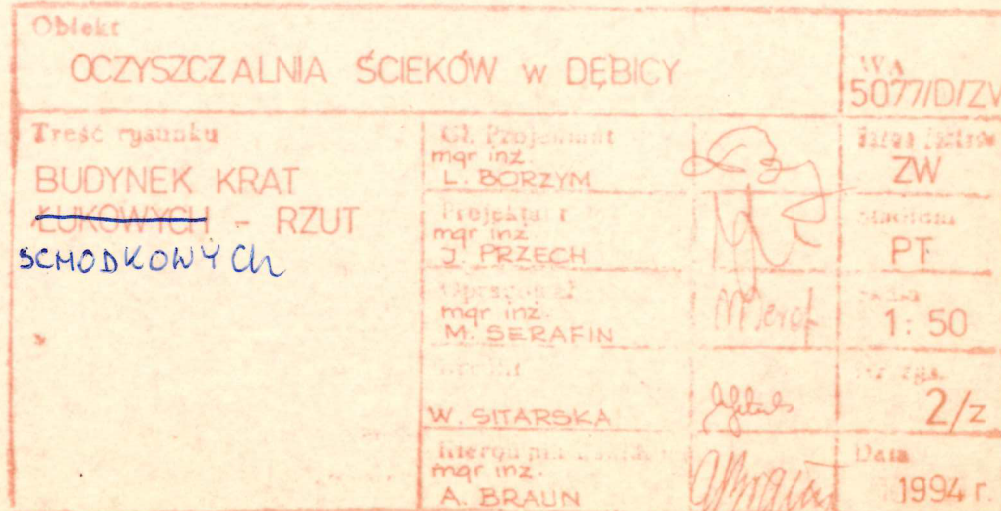 Obiekt
OCZYSZCZALNIA ŚCIEKÓW w DĘBICY
WA
5077/D/ZW
Treść rysunku
BUDYNEK KRAT
ŁUKOWYCH - RZUT
SCHODKOWYCh
Gł. Projektant
mgr inż.
L. BORZYM
Projektant
mgr inż.
J. PRZECH
Opracował
mgr inż.
M. SERAFIN
W. SITARSKA
mgr inż.
A. BRAUN
ZW
Stadium
PT
1:50
2/z
Data
1994 r.